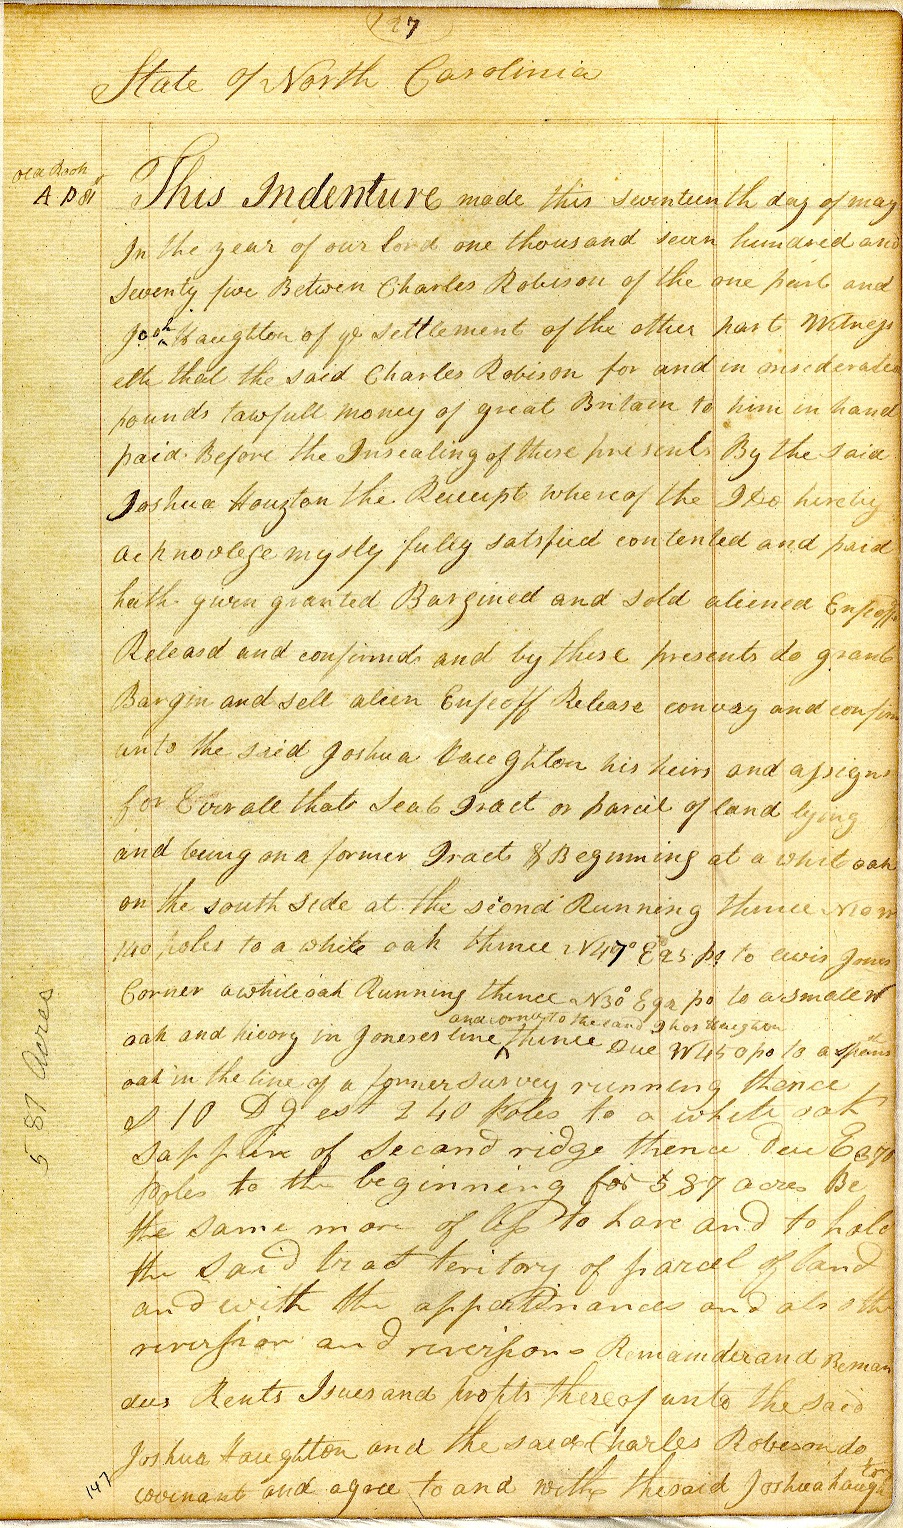 27
State of North Carolina
Old Book
A P 81
This Indenture made this seventeenth day of may
In the year of our lord one thousand seven hundred and
seventy five Betwen Charles Robison of the one part and
Josh Haughton of ye settlement of the other part Witness
eth that the said Charles Robison for and in
pounds lawfull money of great Britain to him in hand
paid Before the Insealing of these presents By the said
Joshua Houzton the Receipt whereof the I do hereby
acknovlege fully satsfied contented and paid
hath given granted Bargined and sold aliened Enfeoff
Releasd and confirmd and by these presents do grant
Bargin and sell alien Enfeoff Release convay and confirm
unto the said Joshua Haughton his heirs and assigns
for Ever all that Seat Tract or parcel of land lying
and being on a former Tract & Beginning at a whit oak
on the south side at the second Running thence N 10 W
140 poles to a white oak thence N 47° E 25 po to Jones
Corner a white oak Running thence N 30° E po to a small W
and corner to the land Haughton
oak and hicory in Joneses line thence Due W 450 po to a spans
oak in the line of a former survey running thence
S 10 D g est 240 Poles to a white oak
sapplin of second ridge thence Due E 370
Poles to the beginning for 587 acres Be
the same more of less to have and to hold
the said tract teritory of parcel of land
and with the appertinances and also the
reverssion and reverssions Remainder and Reman
ders Rents Isues and profits thereof unto the said
Joshua Haughton and the said Charles Robeson do
covenant and agree to and with the said Joshua haughton
587 Acres
147